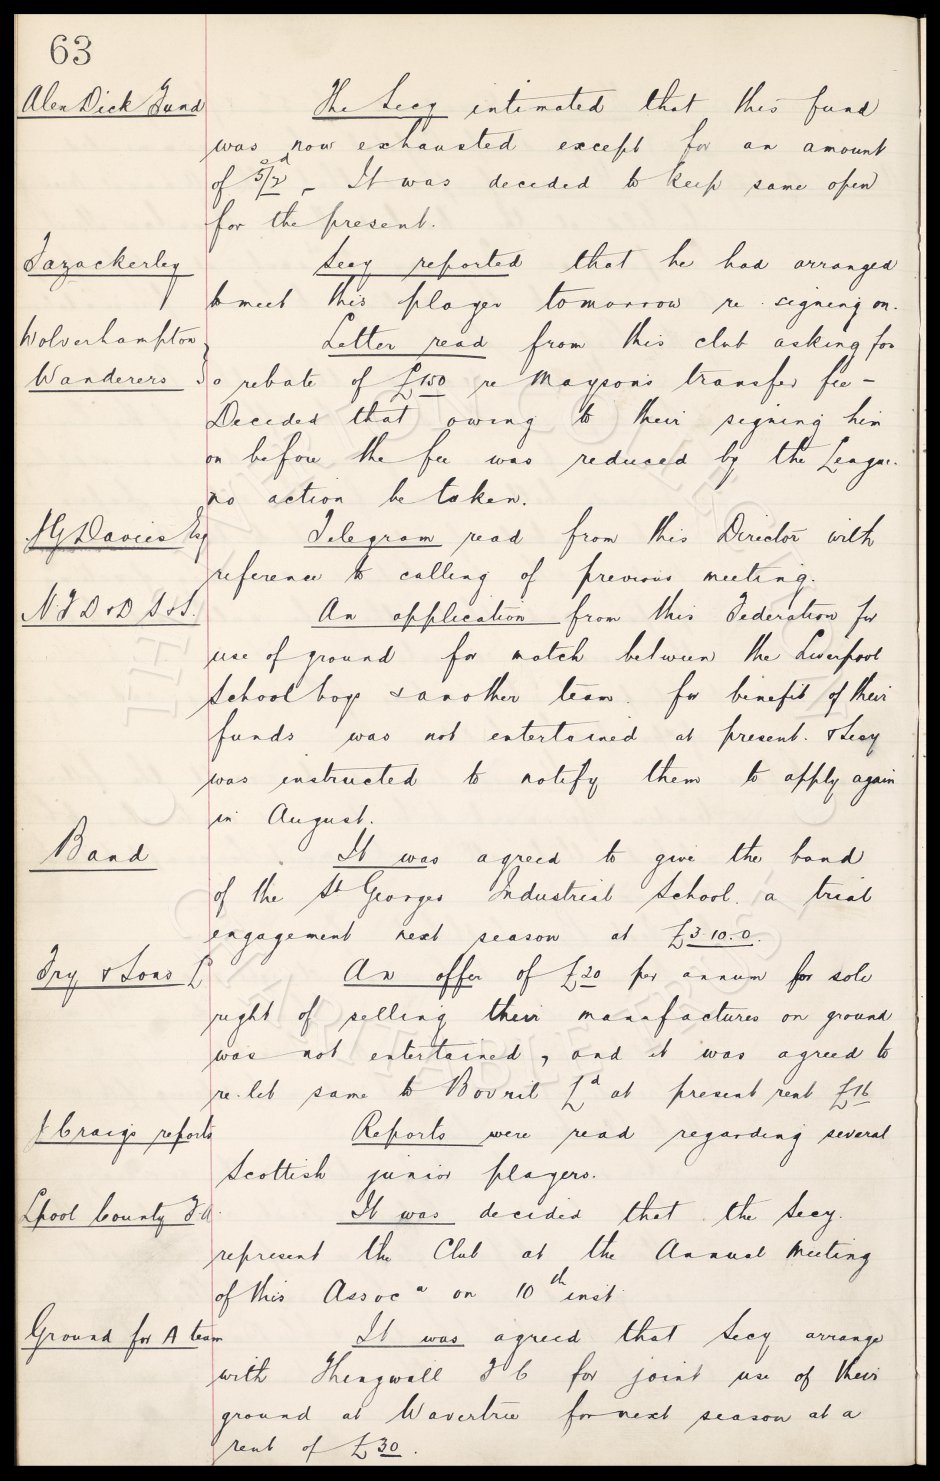 63
Alex Dick Fund
The Secy intimated that this fund
was now exhausted except for an amount
of 5/2d – It was decided to keep same open
for the present.
Fazackerley
Secy reported that he had arranged
to meet this player tomorrow re. signing on.
Wolverhampton
Letter read from this club asking for
Wanderers
a rebate of £150 re Mayson's transfer fee –
Decided that owing to their signing him
on before the fee was reduced by the League.
no action be taken.
Davies Esq
Telegram read from this Director with
reference to calling of previous meeting.
An application from this Federation for
use of ground for match between the Liverpool
School boys & another team. for benefit of their
funds was not entertained at present. & Secy
was instructed to notify them to apply again
in August.
Band
It was agreed to give the band
of the St Georges Industrial School. a trial
engagement next season at £3.10.0.
Fry & Sons L
An offer of £20 per annum for sole
right of selling their manufactures on ground
was not entertained, and it was agreed to
re-let same to Bovril Ld at present rent £16
J Craigs reports
Reports were read regarding several
Scottish junior players.
Lpool County F.A.
It was decided that the Secy.
represent the Club at the Annual Meeting
of this Assoca on 10th inst
Ground for A team
It was agreed that Secy arrange
with Thingwall F C for joint use of their
ground at Wavertree for next season at a
rent of £30.
THE EVERTON COLLECTION
CHARITABLE TRUST